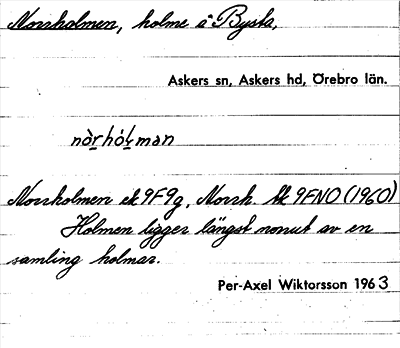 Norrholmen, holme å Bysta,
Askers sn, Askers hd, Örebro län.
nòr̲hól̲mən
Norrholmen ek 9F9g, Norrh. tk 9FNO (1960)
Holmen ligger längst norrut av en
samling holmar.
Per-Axel Wiktorsson 1963